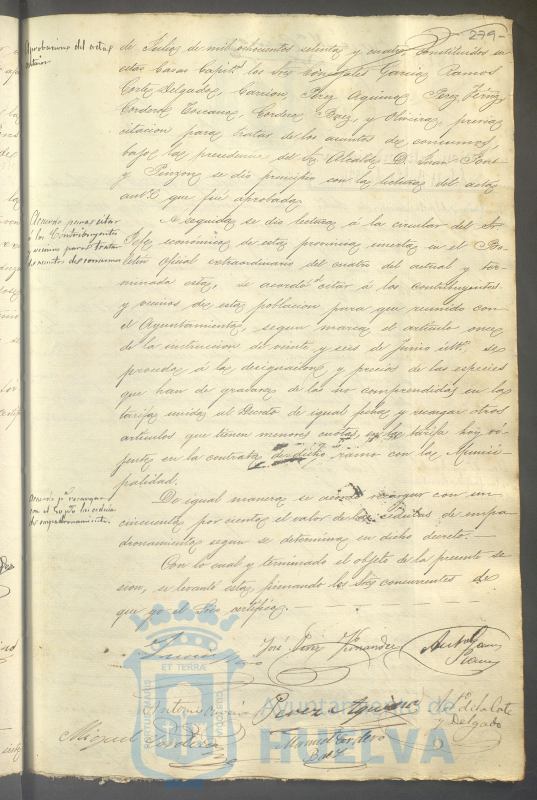 279-
Aprobacion del acta
anterior
de Julio de mil ochocientos setenta y cuatro constituidos en
estas Casas Capit.s los Sres Garcia Ramos
Corte Delgado, Carrion Perez Aquino, Perez
Cordero Toscano, Cordero Baez, y Oliveira, previa
citacion para tratar de los asuntos de consumos,
bajo la presidencia del Sr Alcalde D. Juan
y Pinzon se dio principio con la lectura del acta
ant.r que fué aprobada.
Acuerdo para citar
á los Contribuyentes
y vecinos para tratar
de asuntos de consumos
A seguida se dio lectura á la circular del Sr
Jefe economico de esta provincia inserta en el Bo-
letin Oficial extraordinario del cuatro del actual y ter-
minada esta, se acordó citar á los contribuyentes
y vecinos de esta poblacion para que reunido con
el Ayuntamiento, segun marca el articulo once
de la instruccion de veinte y seis de Junio ult.o se
proceda á la designacion y precios de las especies
que han de gravarse de las no comprendidas en las
tarifas unidas al Decreto de igual fecha y recargar otros
articulos que tienen menores cuotas, en la tarifa hoy vi-
gente en la contrata de dicho ramo con la Munici-
palidad.
Acuerdo p.a recargar
con el 50 p% las cedulas
de empadronamiento.
De igual manera se acordó recargar con un
cincuenta por ciento el valor de las cedulas de empa-
dronamiento segun se determina en dicho decreto.
Con lo cual y terminado el objeto de la presente se-
sion, se levantó esta, firmando los Sres concurrentes de
que yo el Srio certifico.
José Perez Hernandez
Antonio Garcia
Ramos
Perez Aquino
de la Corte
y Delgado
Miguel
Manuel Cordero
Baez
ET TERRAE
PORTUS MARIS
CUSTODIA
Ayuntamiento de
HUELVA